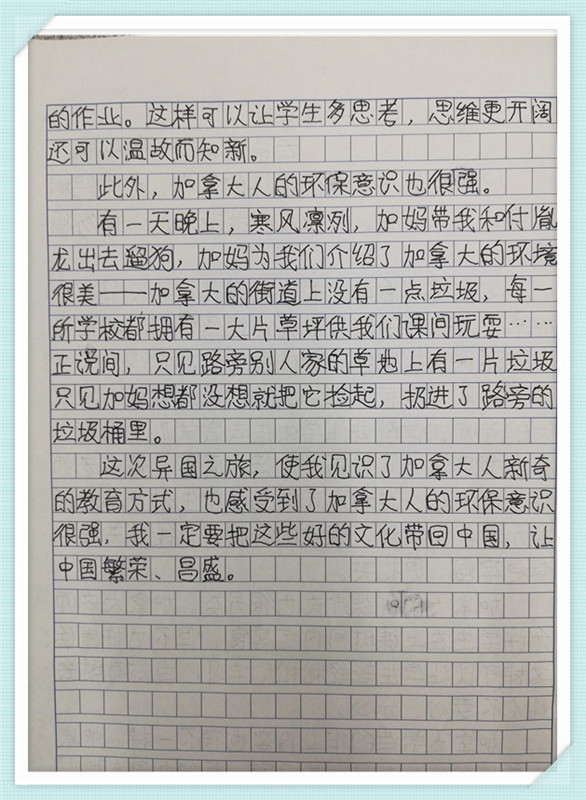 的作业。这样可以让学生多思考，思维更开阔
还可以温故而知新。
此外，加拿大人的环保意识也很强。
有一天晚上，寒风凛冽，加妈带我和付胤
龙出去遛狗，加妈为我们介绍了加拿大的环境
很美——加拿大的街道上没有一点垃圾，每一
所学校都拥有一大片草坪供我们课间玩耍……
正说间，只见路旁别人家的草地上有一片垃圾
只见加妈想都没想就把它捡起，扔进了路旁的
垃圾桶里。
这次异国之旅，使我见识了加拿大人新奇
的教育方式，也感受到了加拿大人的环保意识
很强，我一定要把这些好的文化带回中国，让
中国繁荣、昌盛。